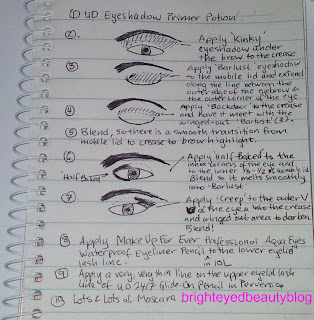 ① UD Eyeshadow Primer Potion
②. Apply 'Kinky'
eyeshadow under
the brow to the crease
③ Apply 'Barlust' eyeshadow
to the mobile lid and extend
along the line between the
outer edge of the eyebrow &
the outer corner of the eye
④ Apply 'Backdoor' to the crease
and have it meet with the
winged-out 'Barlust' (3).
⑤ Blend, so there is a smooth transition from
mobile lid to crease to brow highlight.
⑥ Apply 'Half Baked' to the
inner corners of the eye and
to the inner 1/3 - 1/2 the mobile lid
Half Baked
Blend so it melts smoothly
into 'Barlust'
⑦ Apply 'Creep' to the outer V
of the eye & into the crease
and winged out area to darken.
Blend!
⑧ Apply Make Up For Ever Professional Aqua Eyes
Waterproof Eyeliner Pencil to the lower eyelid
lash line. in 10L
⑨ Apply a very, very thin line on the upper eyelid lash
line of UD 24/7 Glide-On Pencil in Perversion
⑩ Lots & Lots of Mascara
brighteyedbeautyblog